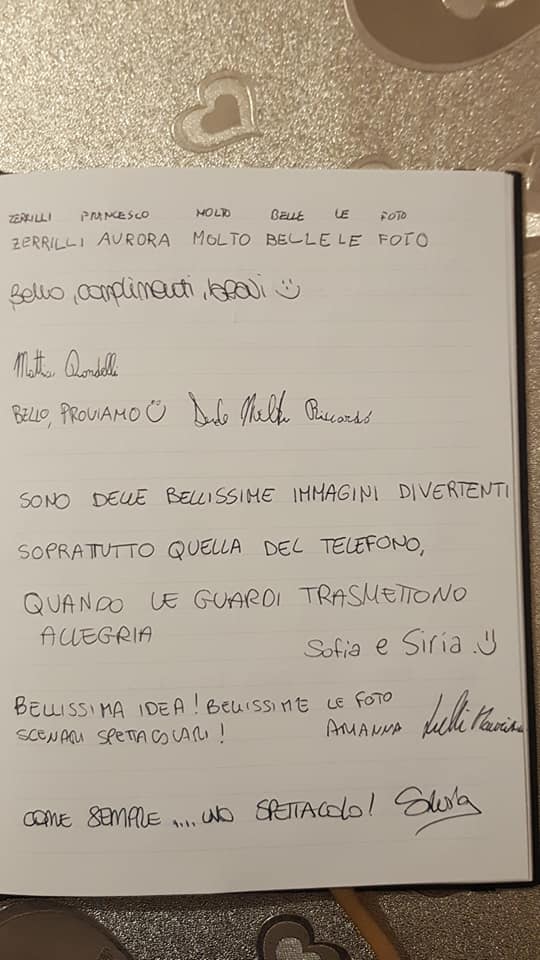 ZERRILLI FRANCESCO MOLTO BELLE LE FOTO
ZERRILLI AURORA MOLTO BELLE LE FOTO
Bello, complimenti, bravi
Mattia
BELLO, PROVIAMO Riccardo
SONO DELLE BELLISSIME IMMAGINI DIVERTENTI
SOPRATTUTTO QUELLA DEL TELEFONO,
QUANDO LE GUARDI TRASMETTONO
ALLEGRIA
Sofia e Siria.
BELLISSIMA IDEA! BELLISSIME LE FOTO
SCENARI SPETTACOLARI! AMANNA
COME SEMPRE .... UNO SPETTACOLO!